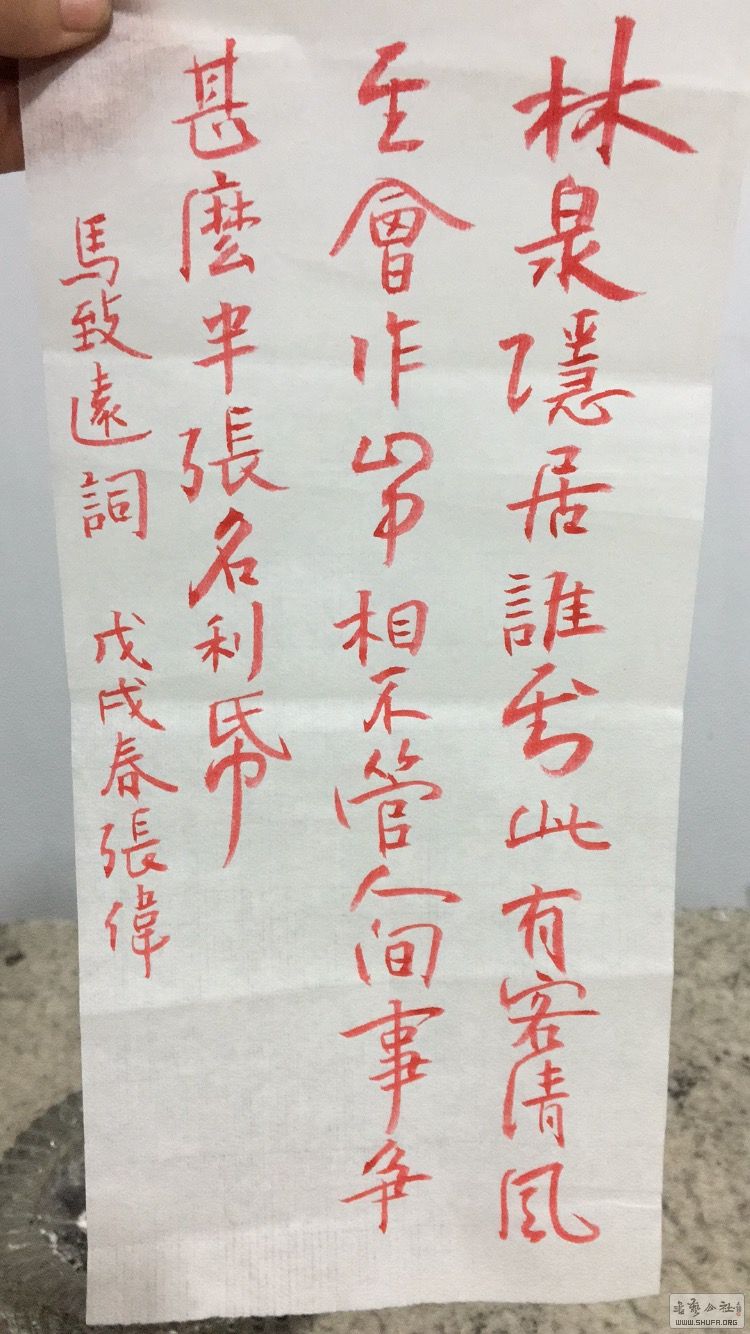 林泉隱居誰到此有客清风
至會作山中相不管人间事争
甚麼半張名利帋
馬致遠詞 戊戌春張偉
书艺公社
WWW.SHUFA.ORG